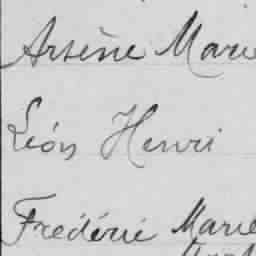 Arsène Marie
Léon Henri
Frédéric Marie